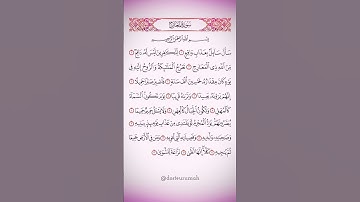 سُورَةُ المَعَارِجِ
بِسْمِ ٱللَّهِ ٱلرَّحْمَـٰنِ ٱلرَّحِيمِ
سَأَلَ سَآئِلٌۢ بِعَذَابٍ وَاقِعٍ ١ لِّلْكَـٰفِرِينَ لَيْسَ لَهُۥ دَافِعٌ ٢
مِّنَ ٱللَّهِ ذِى ٱلْمَعَارِجِ ٣ تَعْرُجُ ٱلْمَلَـٰٓئِكَةُ وَٱلرُّوحُ إِلَيْهِ فِى
يَوْمٍ كَانَ مِقْدَارُهُۥ خَمْسِينَ أَلْفَ سَنَةٍ ٤ فَٱصْبِرْ صَبْرًا جَمِيلًا ٥
إِنَّهُمْ يَرَوْنَهُۥ بَعِيدًا ٦ وَنَرَىٰهُ قَرِيبًا ٧ يَوْمَ تَكُونُ ٱلسَّمَآءُ
كَٱلْمُهْلِ ٨ وَتَكُونُ ٱلْجِبَالُ كَٱلْعِهْنِ ٩ وَلَا يَسْـَٔلُ حَمِيمٌ حَمِيمًا ١٠
يُبَصَّرُونَهُمْ يَوَدُّ ٱلْمُجْرِمُ لَوْ يَفْتَدِى مِنْ عَذَابِ يَوْمِئِذٍۭ بِبَنِيهِ ١١
وَصَـٰحِبَتِهِۦ وَأَخِيهِ ١٢ وَفَصِيلَتِهِ ٱلَّتِى تُـْٔوِيهِ ١٣ وَمَن فِى ٱلْأَرْضِ جَمِيعًا
ثُمَّ يُنجِيهِ ١٤ كَلَّآ إِنَّهَا لَظَىٰ ١٥ نَزَّاعَةً لِّلشَّوَىٰ ١٦